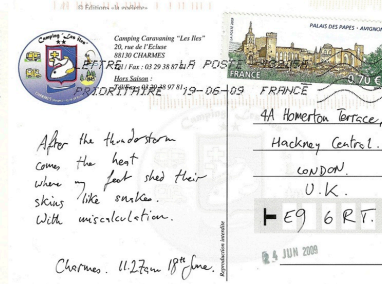 © Editions
Camping "Les Iles"
Camping Caravaning "Les Iles"
20, rue de l'Ecluse
88130 CHARMES
Tél / Fax : 03 29 38 87
Hors Saison :
Téléphone : 03 29 38 97 81
LETTRE LA POSTE
PRIORITAIRE 19-06-09 FRANCE
PALAIS DES PAPES - AVIGNON
LA POSTE 2009
FRANCE
0,70 €
After the thunderstorm
comes the heat
where my feet shed their
skins like snakes.
With miscalculation.
Charmes. 11.27am 18th June.
Reproduction interdite
4A Homerton Terrace,
Hackney Central.
LONDON.
U.K.
E9 6RT.
24 JUN 2009